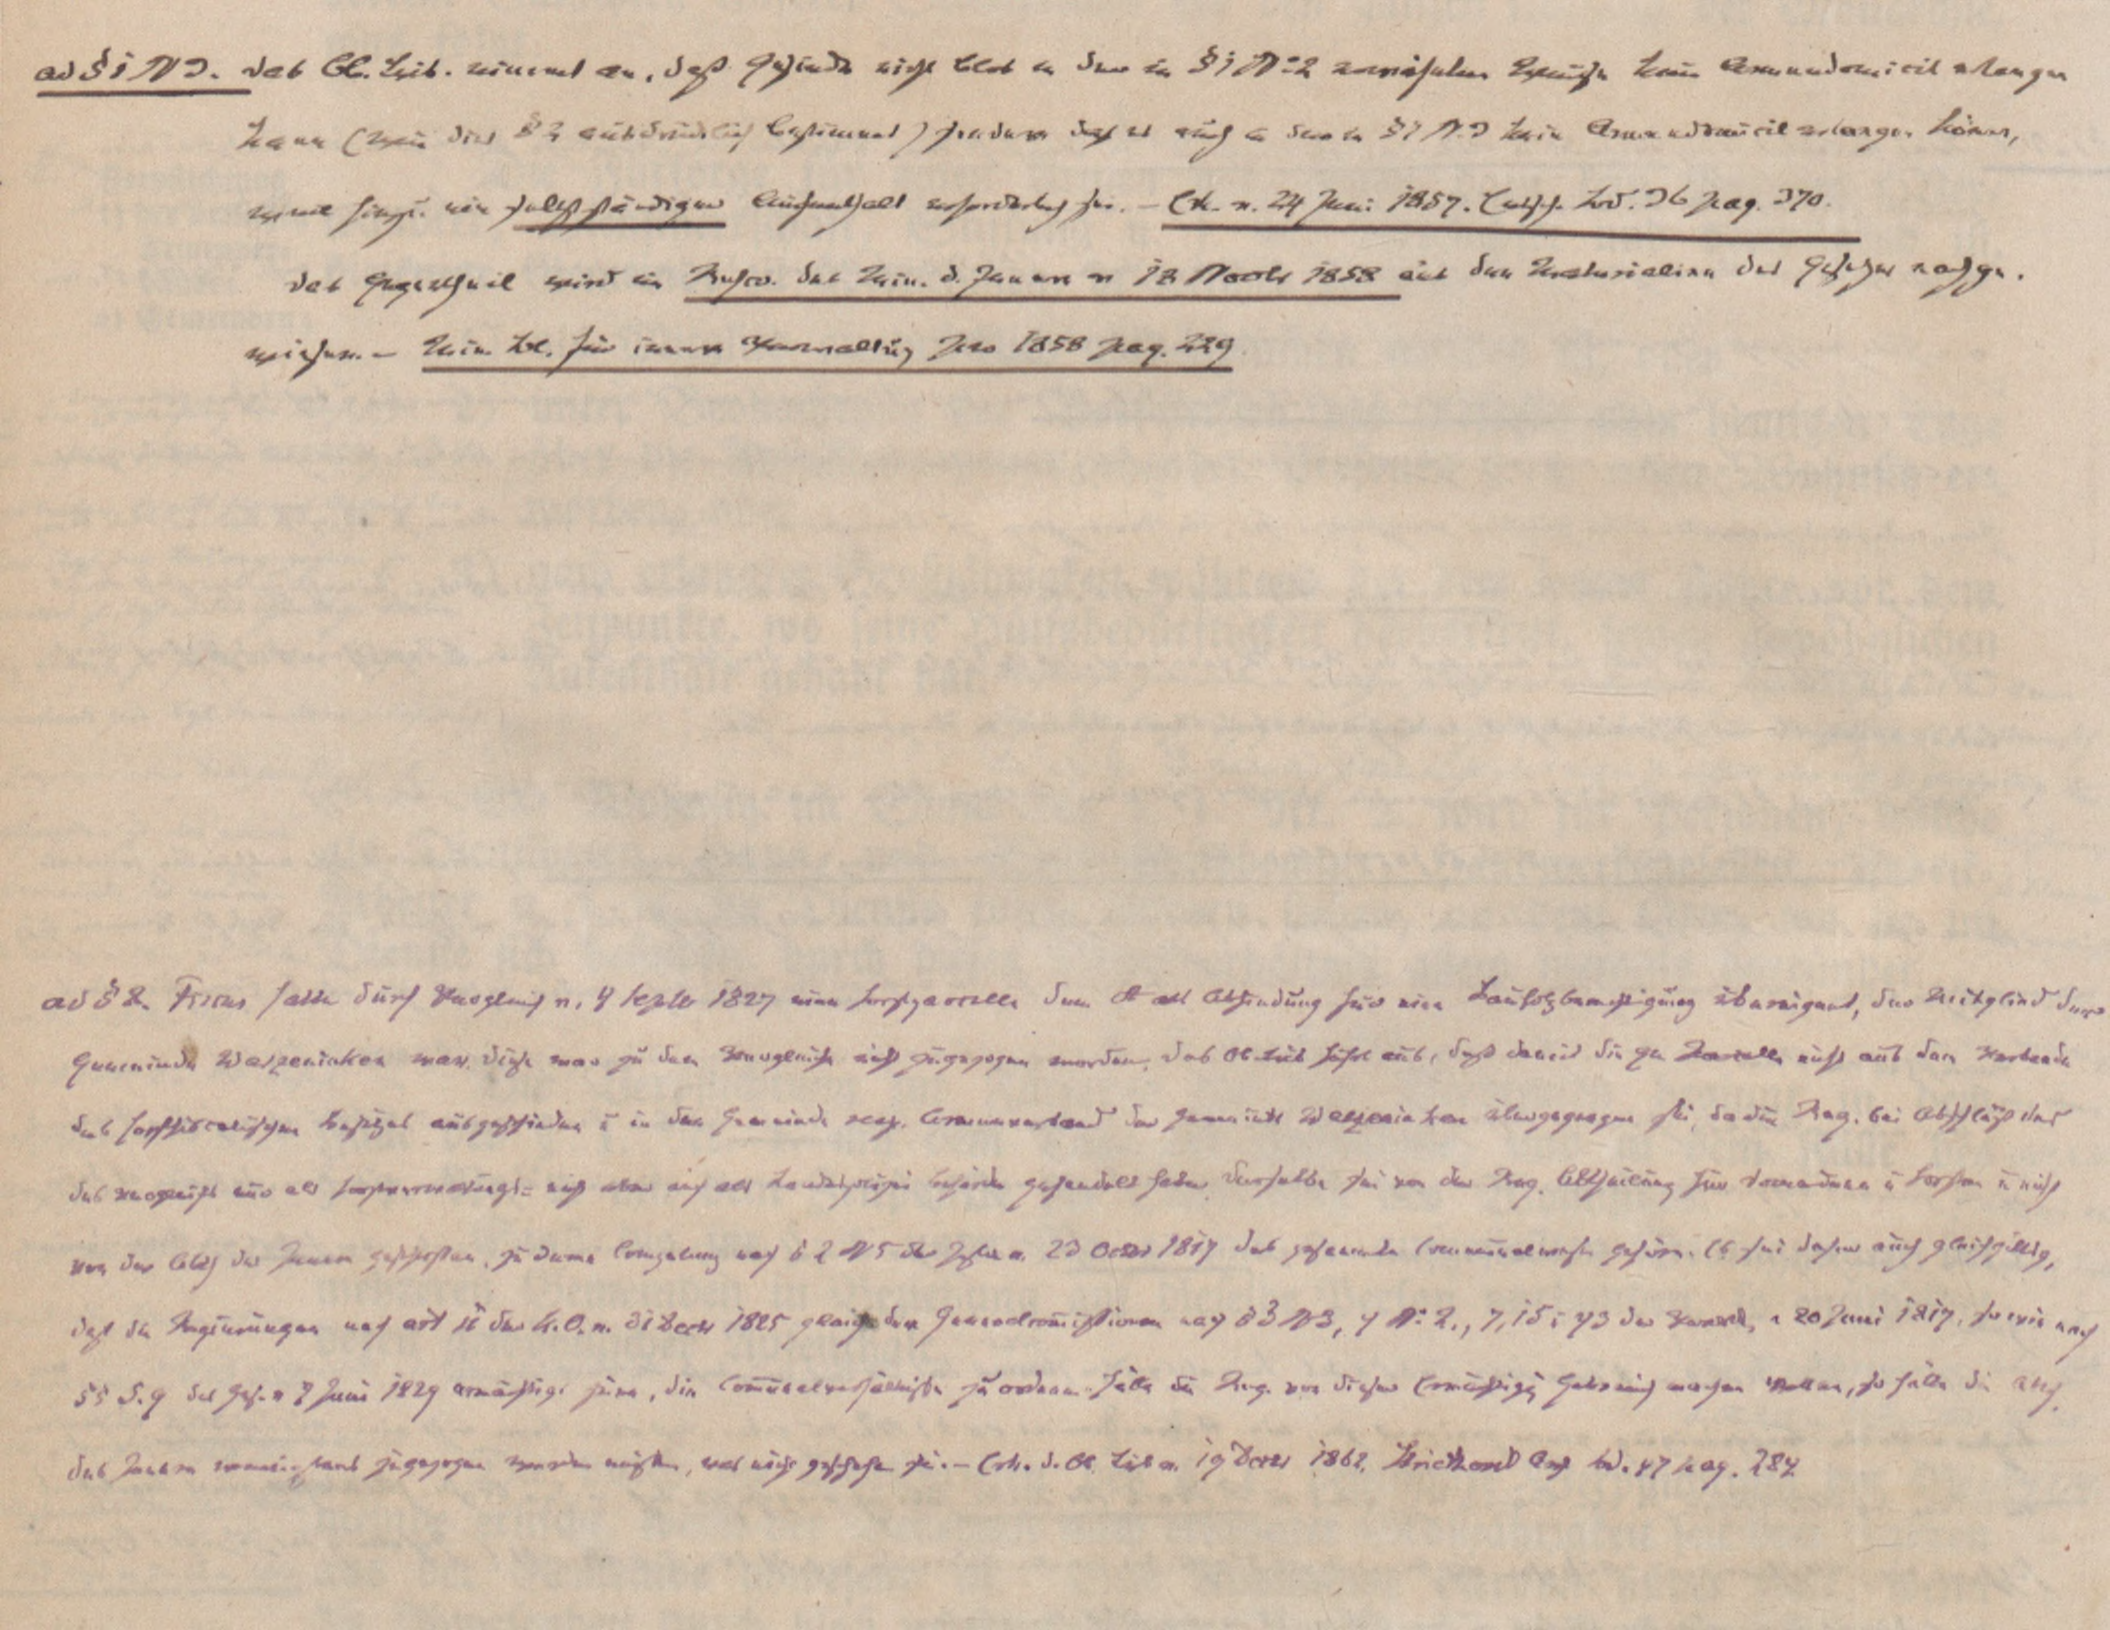 ad § 1 N 3. das Ob. Trib. nimmt an, daß Gesinde nicht blos in der in § 1 No 2 vorgesehenen Weise kein Armendomicil erlangen
kann (wie dies § 2 ausdrücklich bestimmt) sondern daß es auch in der in § 1 N. 3 kein Armendomicil erlangen könne,
weil hierzu ein selbstständiger Aufenthalt erforderlich sei. – Erk. v. 24 Juni 1857. Entsch. Bd. 36 pag. 370.
das Gegentheil wird im Rescr. des Min. d. Innern v 18 Novbr 1858 aus den Materialien des Gesetzes nachge-
wiesen. – Min. Bl. für innere Verwaltung pro 1858 pag. 229
ad § 2. Fiscus hatte durch Vergleich v. 4 Septbr 1827 eine Forstparcelle dem A als Abfindung für eine Bauholzberechtigung übereignet, der Mitglied der
Gemeinde Waszeninken war. diese war zu dem Vergleiche nicht zugezogen worden. Das Ob. Trib führt aus, daß damit die qu Parcelle nicht aus dem Verbande
des forstfiscalischen Besitzes ausgeschieden u in den Gemeinde resp. Armenverband der Gemeinde Waszeninken übergegangen sei, da die Reg. bei Abschluß des
des Vergleichs nur als Forstverwaltungs- nicht aber auch als Landespolizei Behörde gehandelt habe. derselbe sei von der Reg. Abtheilung für Domainen u Forsten u nicht
von der Abth des Innern geschlossen, zu deren Competenz nach § 2 N 5 der Instr. v. 23 Octbr 1817 das gesammte Communalwesen gehöre. Es sei daher auch gleichgültig,
daß die Regierungen nach art 11 der K. O. v. 31 Decbr 1825 gleich den Generalcommissionen nach § 3 N 3, 4 No 2., 7, 15 u 43 der Verord. v 20 Juni 1817, sowie nach
§§ 5. 9 des Ges. v 7 Juni 1829 ermächtigt seien, die Communalverhältnisse zu ordnen. Hätte die Reg. von dieser Ermächtigg Gebrauch machen wollen, so hätte die Abth.
des Innern zugezogen werden müssen, was nicht geschehen sei. – Erk. d. Ob. Trib v. 19 Decbr 1862. Striethorst Arch Bd. 47 pag. 284